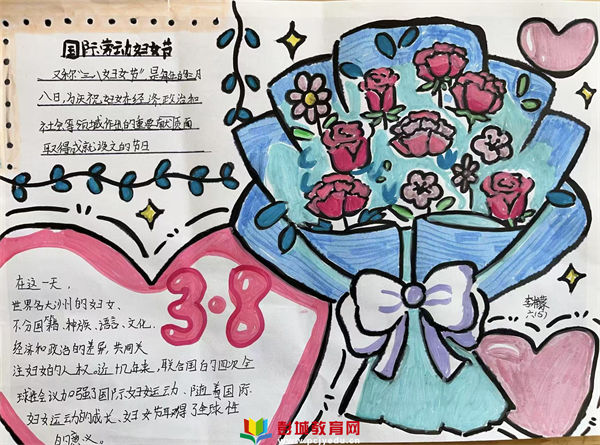 国际劳动妇女节
又称“三八妇女节”是每年的三月
八日,为庆祝妇女在经济政治和
社会等领域作出的重要贡献而
取得成就设立的节日
在这一天,
世界各大洲的妇女、
不分国籍、种族、语言、文化、
经济和政治的差异,共同关
注妇女的人权。近几年来,联合国的四次全
球性会议加强了国际妇女运动、随着国际
妇女运动的成长、妇女节取得了全球性
的意义。
3·8
六(5)
彭城教育网
www.pcjyedu.cn